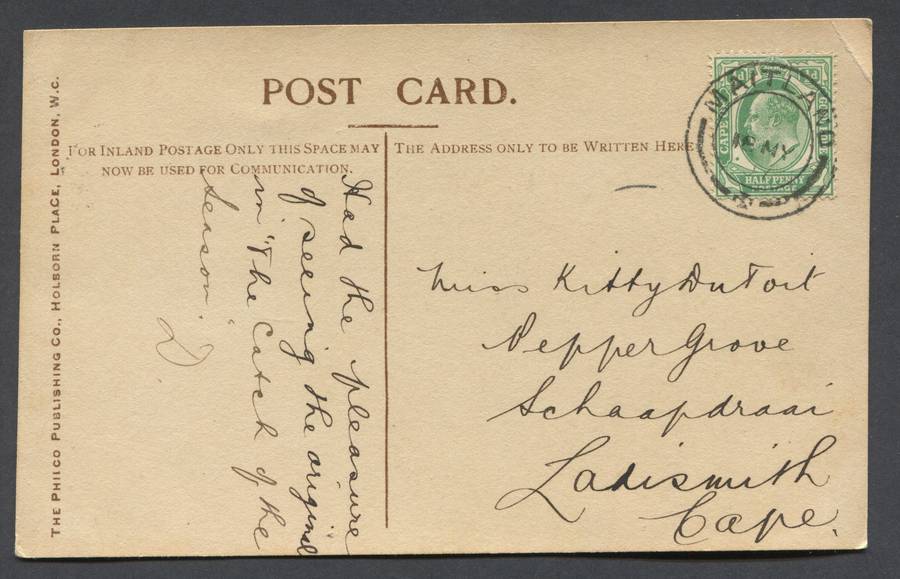 POST CARD.
FOR INLAND POSTAGE ONLY THIS SPACE MAY
NOW BE USED FOR COMMUNICATION.
THE ADDRESS ONLY TO BE WRITTEN HERE
THE PHILCO PUBLISHING CO., HOLBORN PLACE, LONDON, W.C.
Had the pleasure
of seeing the original
in "The Catch of the
Season."
D.
Miss Kitty DuToit
Pepper Grove
Schaapdraai
Ladismith
Cape.
MAITLAND
MY
CAPE
HALFPENNY
POSTAGE